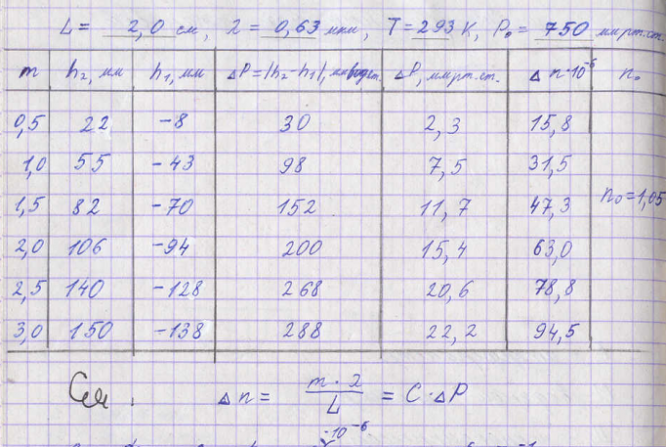 L = 2,0 см, λ = 0,63 мкм, T = 293 K, P₀ = 750 мм рт. ст.
m h₂, мм h₁, мм ΔP = |h₂-h₁|, мм вод ст. ΔP, мм рт. ст. Δn·10⁻⁶ n₀
0,5 22 -8 30 2,3 15,8
1,0 55 -43 98 7,5 31,5
1,5 82 -70 152 11,7 47,3 n₀ = 1,05
2,0 106 -94 200 15,4 63,0
2,5 140 -128 268 20,6 78,8
3,0 150 -138 288 22,2 94,5
Δn = m·λ / L = C·ΔP
·10⁻⁶